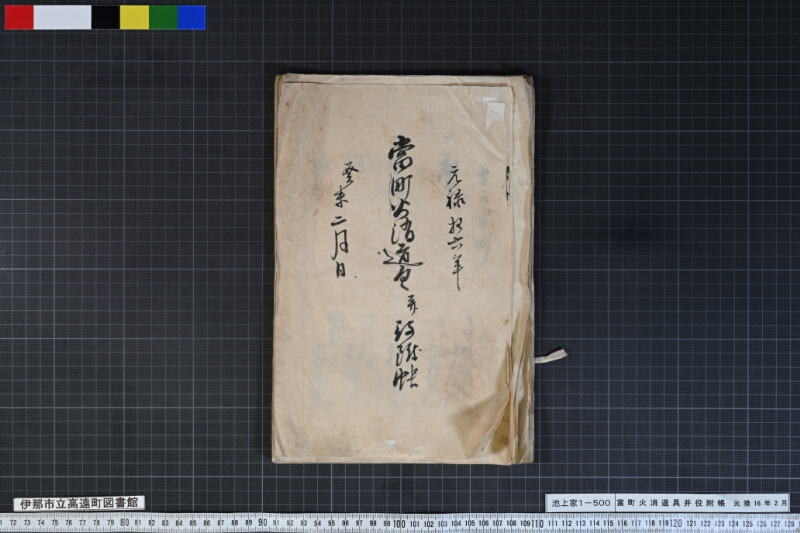 元禄拾六年
當町火消道具并役附帳
癸未二月日
伊那市立高遠町図書館
池上家1-500 當町火消道具并役附帳 元禄16年2月
1 72 73 74 75 76 77 78 79 80 81 82 83 84 85 86 87 88 89 90 91 92 93 94 95 96 97 98 99 100 101 102 103 104 105 106 107 108 109 110 111 112 113 114 115 116 117 118 119 120 121 122 123 124 125 126 127 128